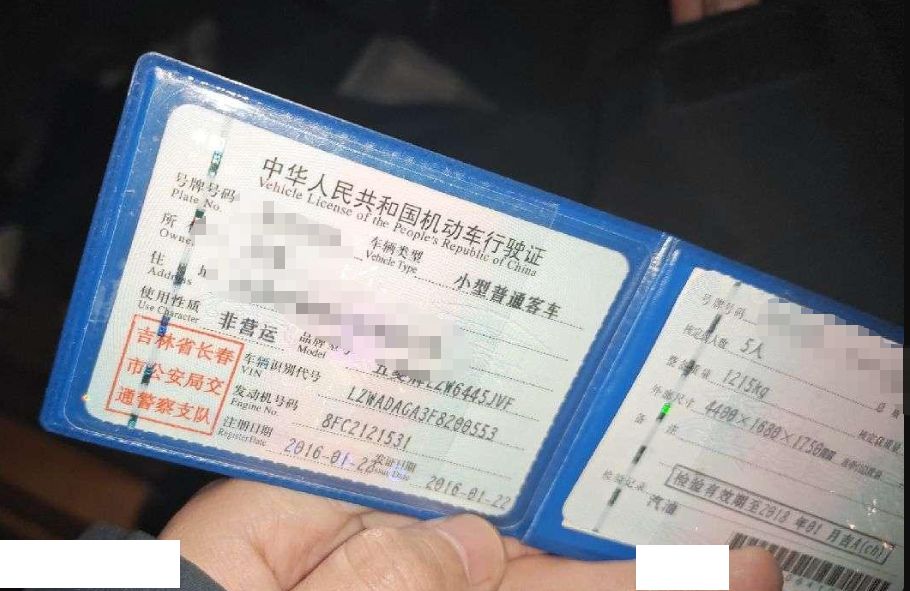 中华人民共和国机动车行驶证
Vehicle License of the People's Republic of China
号牌号码
Plate No.
车辆类型
Vehicle Type
小型普通客车
所
Owner
住
Address
使用性质
Use Character
非营运
品牌
Model
LZW6445JVF
吉林省长春
市公安局交
通警察支队
车辆识别代号
VIN
LZWADAGA3F8200553
发动机号码
Engine No.
8FC2121531
注册日期
Register Date
2016-01-22
发证日期
Issue Date
2016-01-22
号牌号码
核定载人数
5人
整备质量
1215kg
总
外廓尺寸
4400×1680×1750
核定载质量
备 注
检验记录
检验有效期至2018 年01 月吉A(ch)
汽油